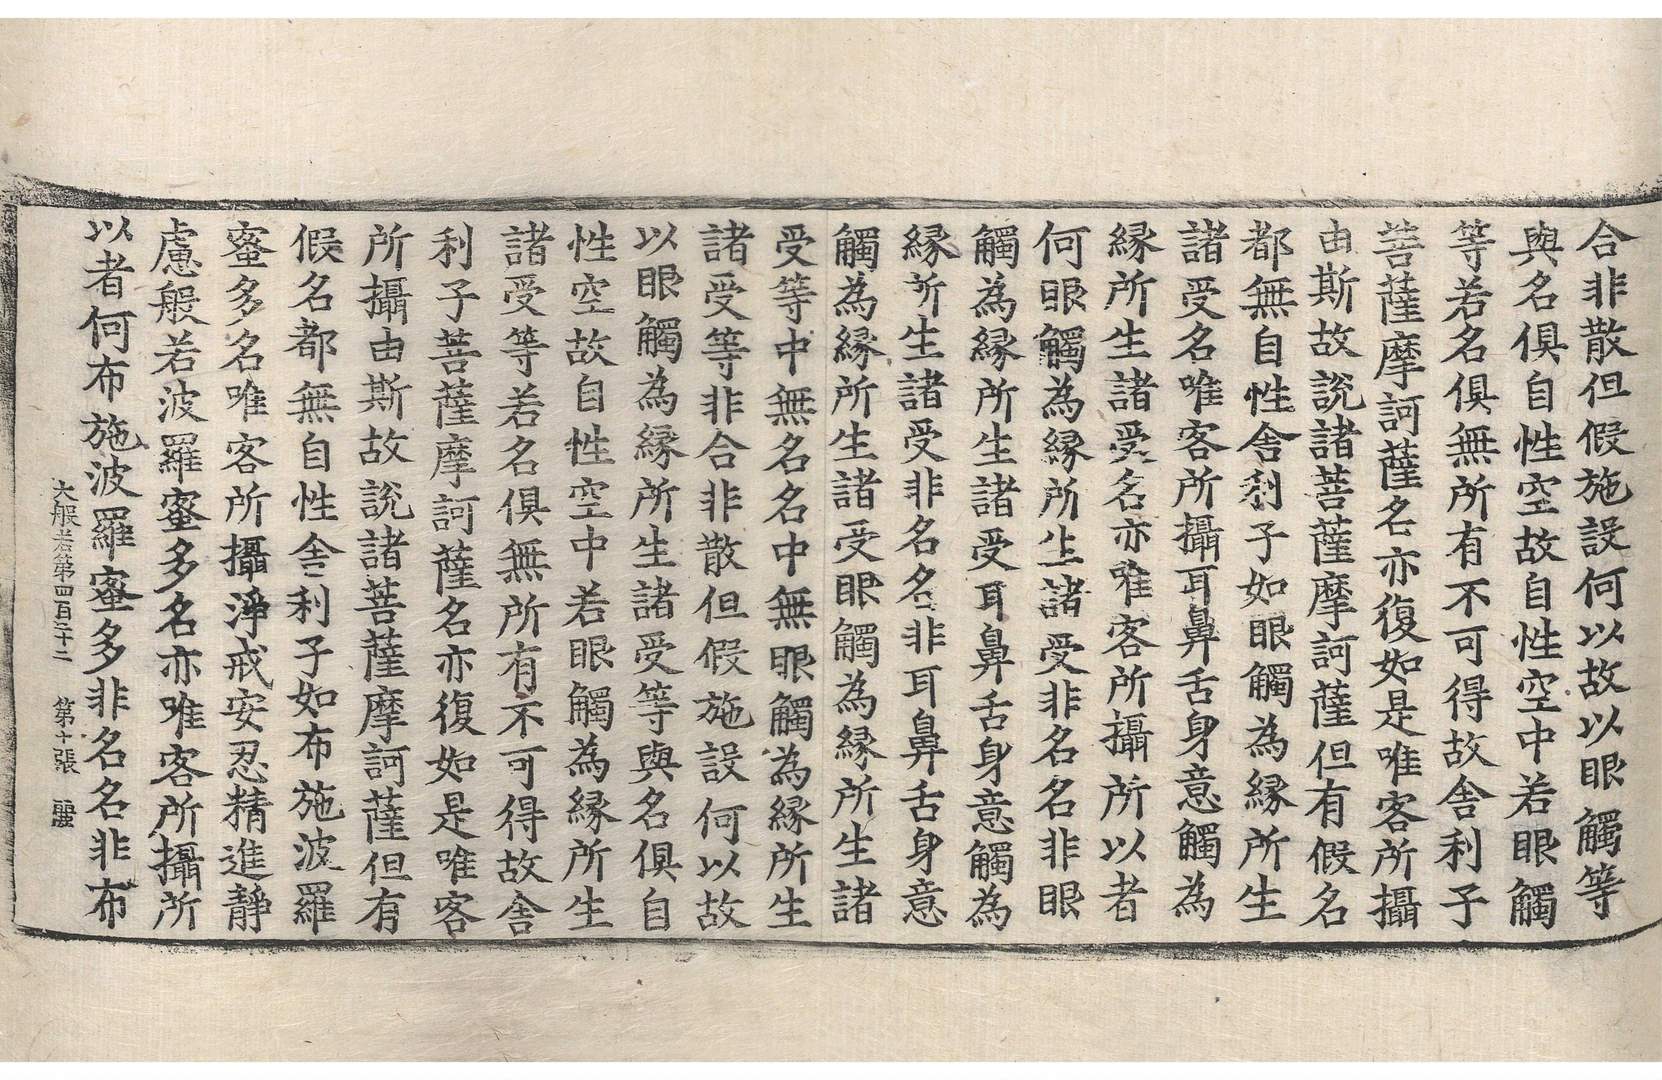 合非散但假施設何以故以眼觸等
與名俱自性空故自性空中若眼觸
等若名俱無所有不可得故舍利子
菩薩摩訶薩名亦復如是唯客所攝
由斯故說諸菩薩摩訶薩但有假名
都無自性舍利子如眼觸為縁所生
諸受名唯客所攝耳鼻舌身意觸為
縁所生諸受名亦唯客所攝所以者
何眼觸為縁所生諸受非名名非眼
觸為縁所生諸受耳鼻舌身意觸為
縁所生諸受非名名非耳鼻舌身意
觸為縁所生諸受眼觸為縁所生諸
受等中無名名中無眼觸為縁所生
諸受等非合非散但假施設何以故
以眼觸為縁所生諸受等與名俱自
性空故自性空中若眼觸為縁所生
諸受等若名俱無所有不可得故舍
利子菩薩摩訶薩名亦復如是唯客
所攝由斯故說諸菩薩摩訶薩但有
假名都無自性舍利子如布施波羅
蜜多名唯客所攝淨戒安忍精進靜
慮般若波羅蜜多名亦唯客所攝所
以者何布施波羅蜜多非名名非布
大般若第四百二十二 第十張 麗